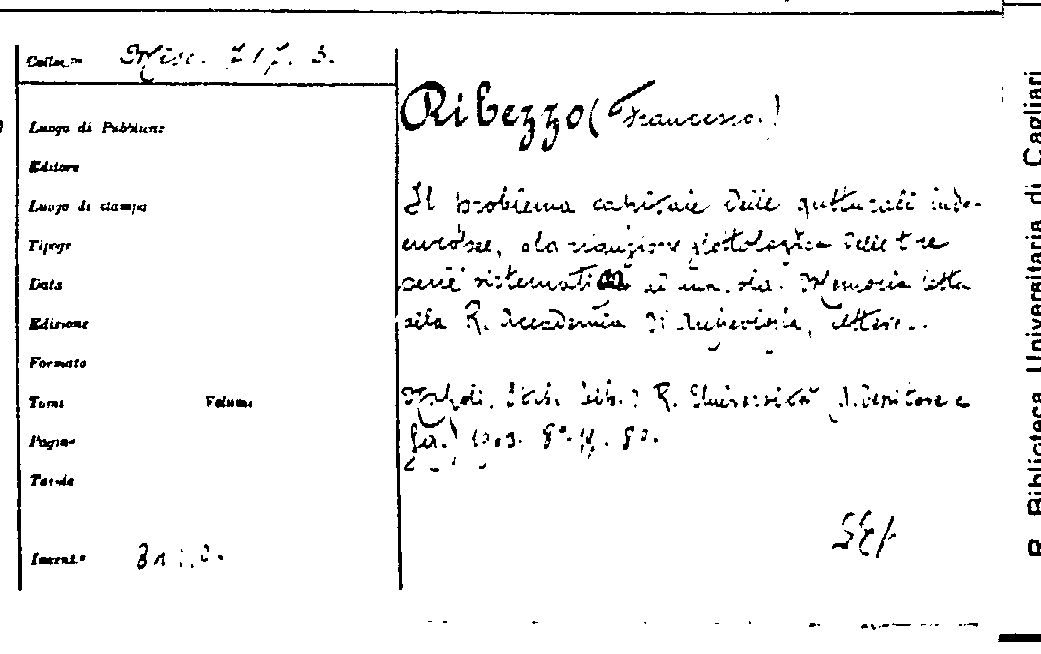 Colloc.ne Misc. 717. 3.
Luogo di Pubblicaz
Editore
Luogo di stampa
Tipogr
Data
Edizione
Formato
Tomi Volumi
Pagine
Tavole
Invent.e
Ribezzo (Francesco.)
Il problema capitale delle gutturali indo-
europee, o la riduzione glottologica delle tre
serie sistemati ad una sola. Memoria letta
alla R. Accademia di Archeologia, lettere..
Napoli, Stab. tip. R. Università A. Tenitore e
1903. 8º. 80.
R. Biblioteca Universitaria di Cagliari